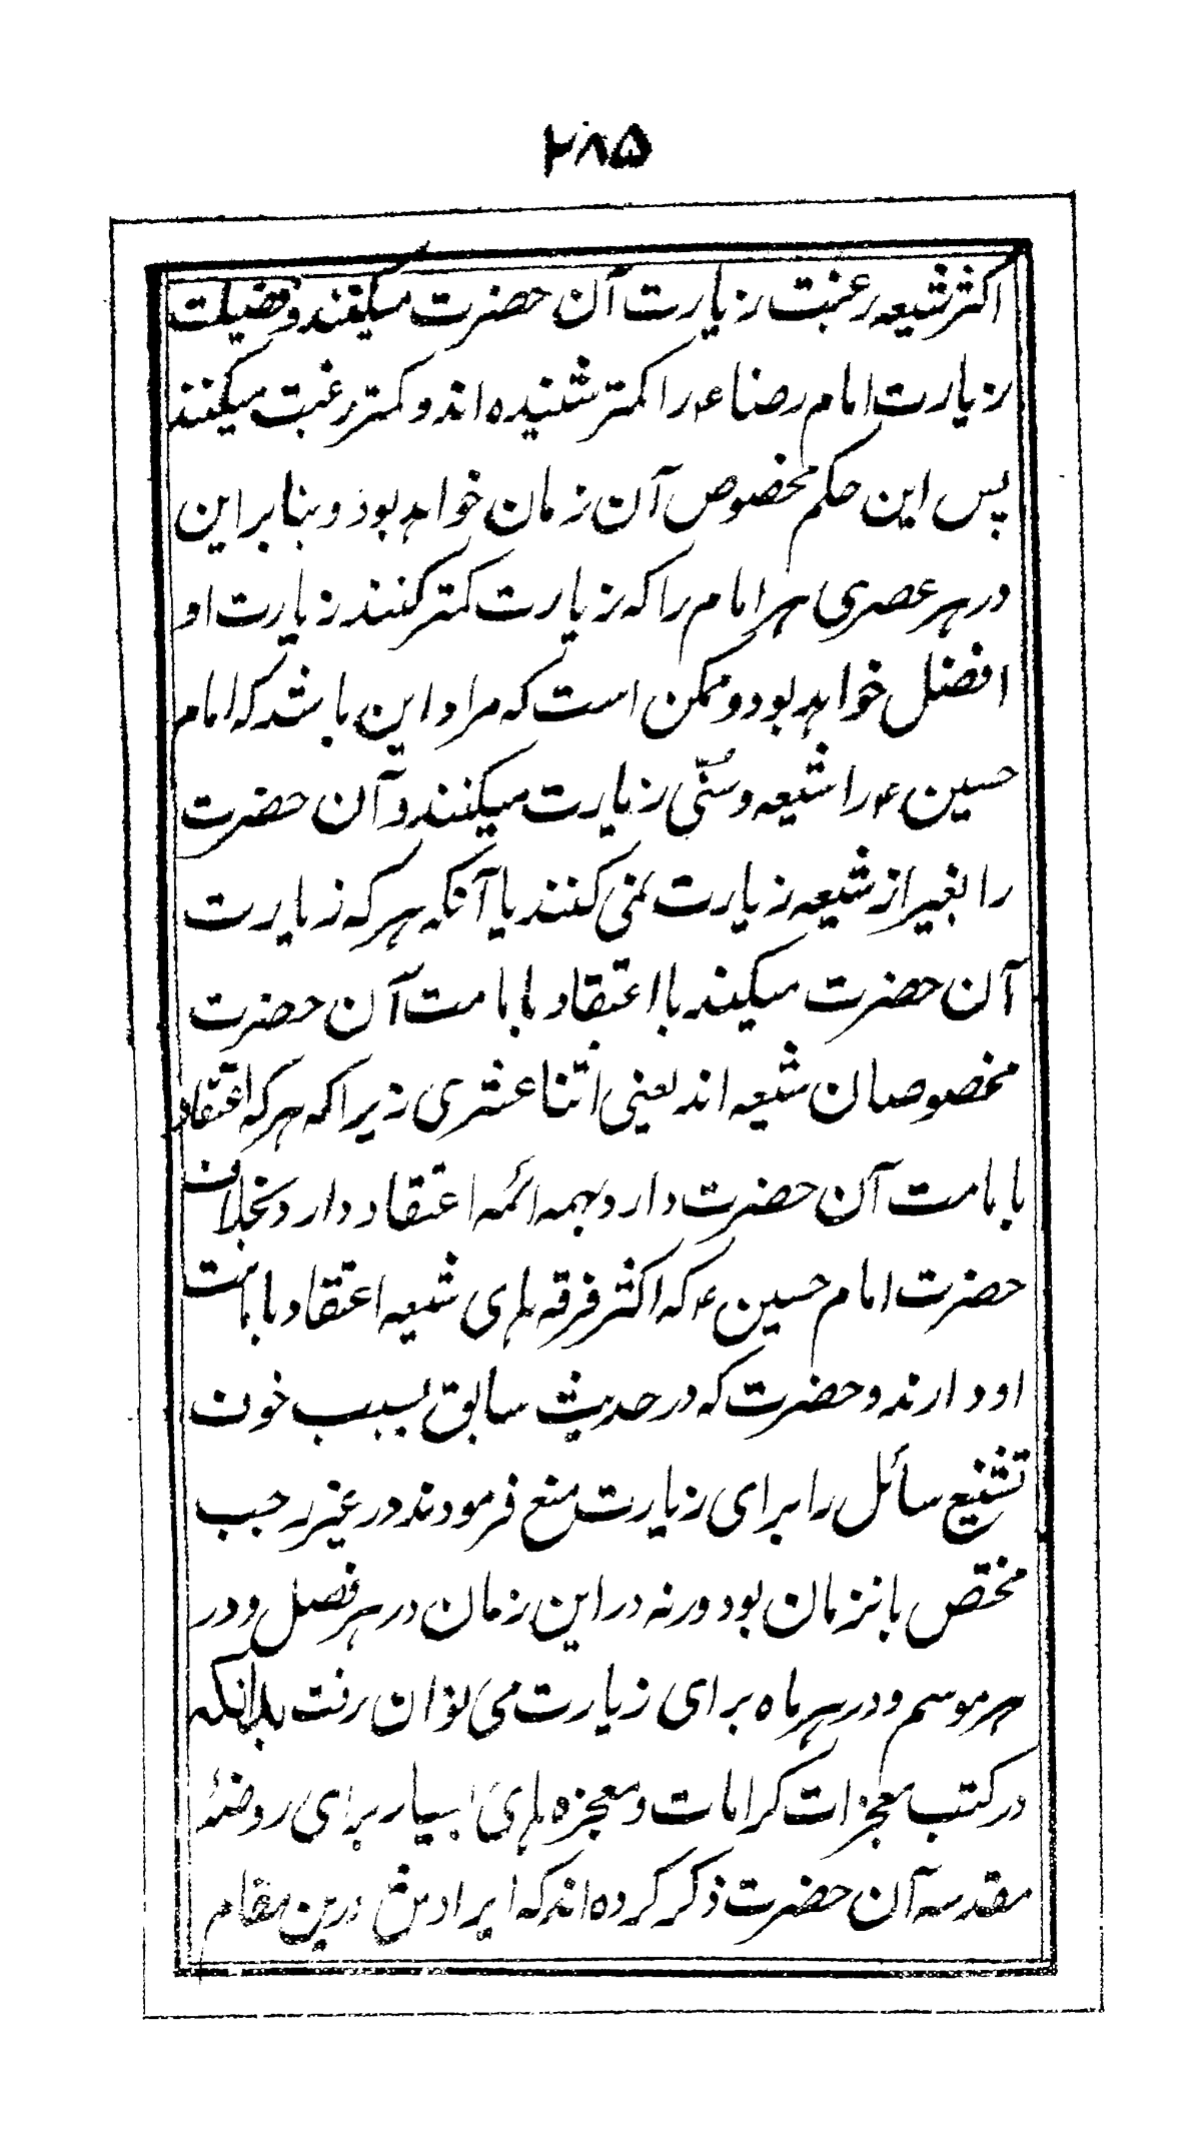 ۲۸۵
اکثر شیعه رغبت زیارت آن حضرت میکنند و فضیلت
زیارت امام رضا ع را کمتر شنیده اند و کمتر رغبت میکنند
پس این حکم مخصوص آن زمان خواهد بود و بنا براین
در هر عصری هر امام را که زیارت کمتر کنند زیارت او
افضل خواهد بود و ممکن است که مراد این باشد که امام
حسین ع را شیعه و سُنّی زیارت میکنند و آن حضرت
را بغیر از شیعه زیارت نمی کنند یا آنکه هر که زیارت
آن حضرت میکند با اعتقاد بامامت آن حضرت
مخصوصان شیعه اند یعنی اثنا عشری زیرا که هر که اعتقاد
بامامت آن حضرت دارد بهمه ائمه اعتقاد دارد بخلاف
حضرت امام حسین ع که اکثر فرقه های شیعه اعتقاد بامامت
او دارند و حضرت که در حدیث سابق بسبب خون
تشنیع سائل را برای زیارت منع فرمودند در غیر رجب
مختص بانزمان بود ورنه در این زمان در هر فصل و در
هر موسم و در هر ماه برای زیارت می توان رفت بدانکه
در کتب معجزات کرامات و معجزه های بسیار برای روضهٔ
مقدسه آن حضرت ذکر کرده اند که ایرادش درین مقام